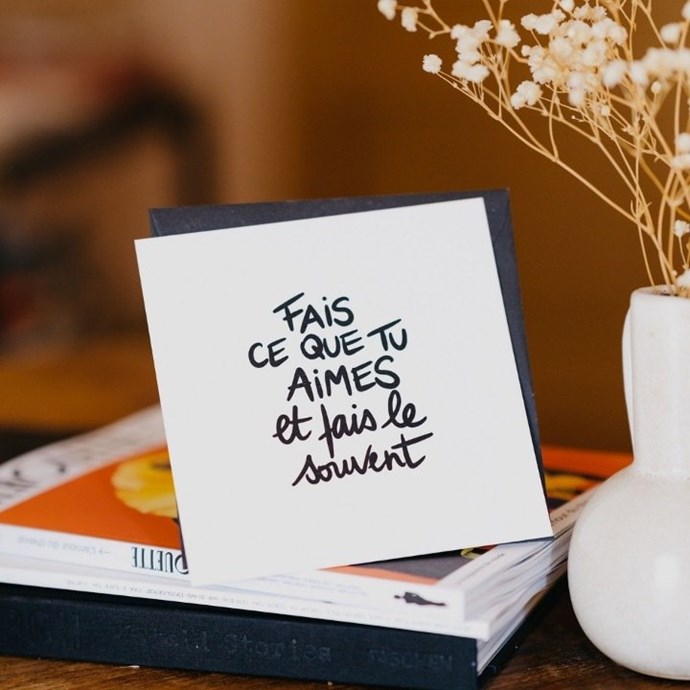 FAiS
CE QUE TU
AiMES
et fais le
souvent
QUETTE
Stories
TASCHEN